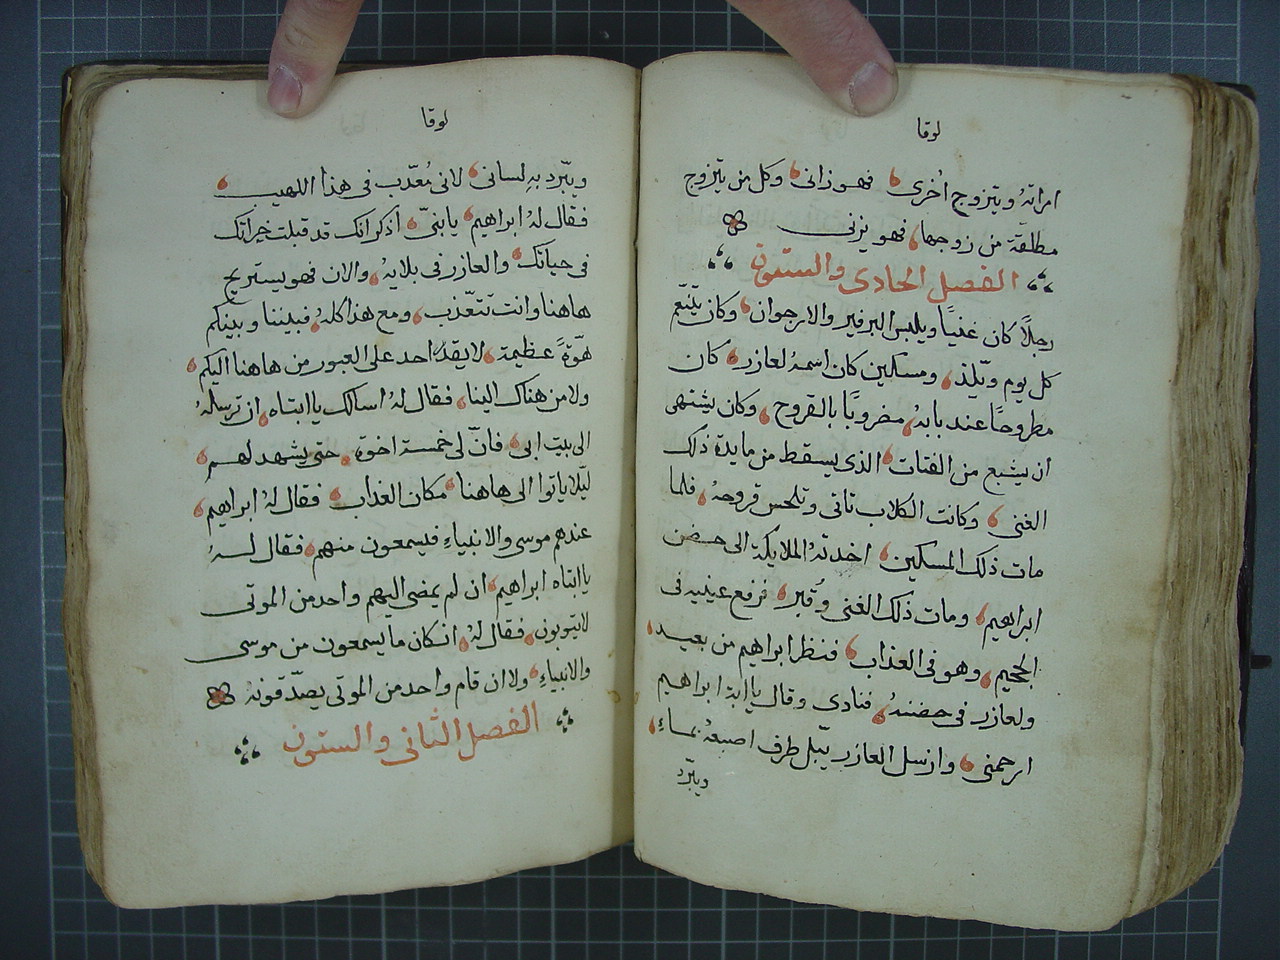 لوقا
امراتهُ ويتزوج اُخرى فهو زانى وكل من يتزوج
مطلقة من زوجها فهو يزنى
الفصل الحادى والستون
رجلاً كان غنياً ويلبس البرفير والارجوان وكان يتنعّم
كل يوم ويلذ ومسكين كان اسمهُ لعازر كان
مطروحاً عند بابهُ مضروباً بالقروح وكان يشتهى
ان يشبع من الفتات الذى يسقط من مايدة ذلك
الغنى وكانت الكلاب تاتى وتلحس قروحهُ فلما
مات ذلك المسكين اخدتهُ الملايكة الى حضن
ابراهيم ومات ذلك الغنى وقُبر فرفع عينيه فى
الجحيم وهو فى العذاب فنظر ابراهيم من بعيد
ولعازر فى حضنهُ فنادى وقال يا ابة ابراهيم
ارحمنى وارسل العازر يبّل طرف اصبعهُ بماءِ
ويبّرد
لوقا
ويبّرد بهِ لسانى لانى مُعذّب فى هذا اللهيب
فقال لهُ ابراهيم يابنىّ اذكر انك قد قبلت خيراتك
فى حياتك والعازر فى بلايهُ والان فهو يستريح
هاهنا وانت تتعذب ومع هذا كلهُ فبيننا وبينكم
هوّةً عظيمة لا يقدر احد على العبور من هاهنا اليكم
ولا من هناك الينا فقال لهُ اسالك يا ابتاه ان ترسلهُ
الى بيت ابى فانّ لى خمسة اخوة حتى يشهد لهم
ليّلا ياتوا الى هاهنا مكان العذاب فقال لهُ ابراهيم
عندهم موسى والانبياءِ فيسمعون منهم فقال لهُ
يا ابتاه ابراهيم ان لم يمضى اليهم واحد من الموتى
لا يتوبون فقال لهُ ان كان ما يسمعون من موسى
والانبياءِ ولا ان قام واحد من الموتى يصدّقونهُ
الفصل الثانى والستون